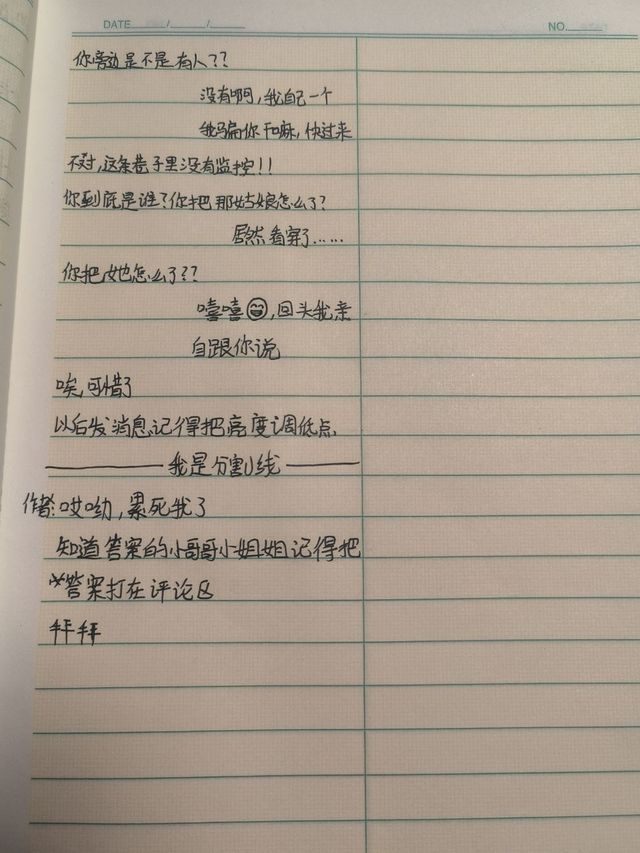 DATE / /
NO.
你旁边是不是有人??
没有啊,我自己一个
我骗你干嘛,快过来
不对,这条巷子里没有监控!!
你到底是谁?你把那姑娘怎么了?
居然看穿了……
你把她怎么了??
嘻嘻😄,回头我亲
自跟你说
唉,可惜了
以后发消息,记得把亮度调低点
我是分割线
作者:哎呦,累死我了
知道答案的小哥哥小姐姐记得把
答案打在评论区
拜拜